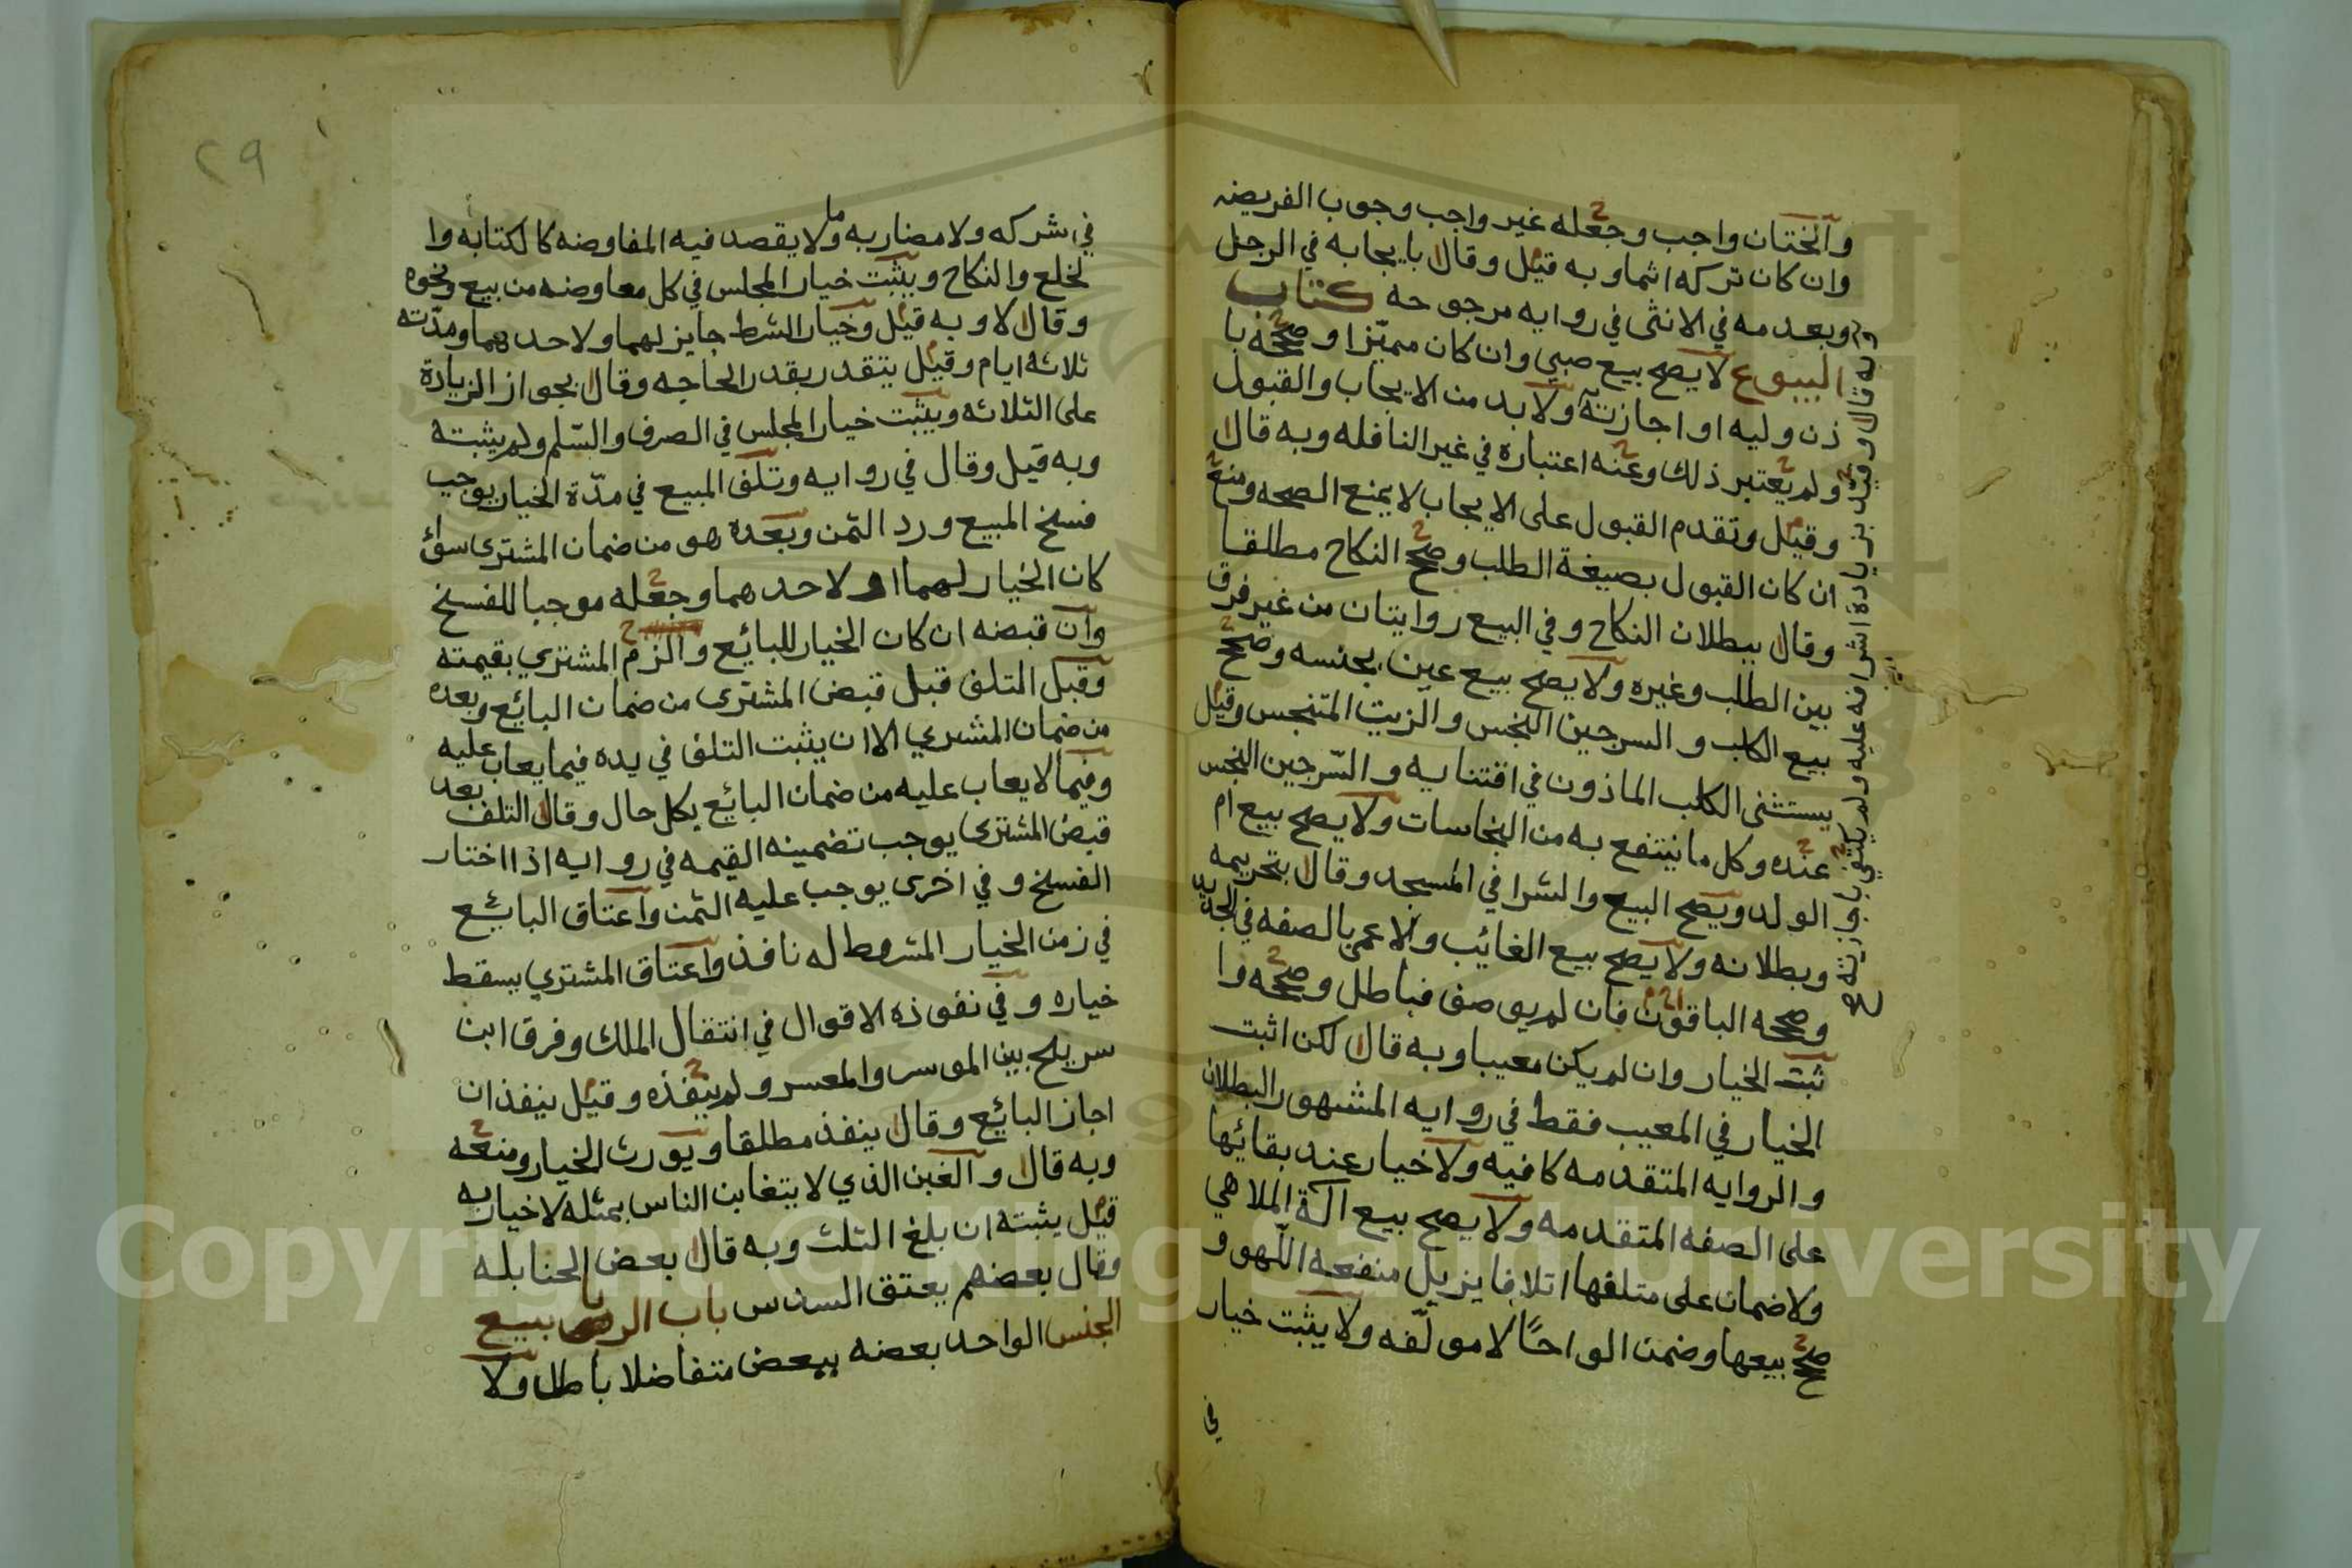 والختان واجب وجعله غير واجب وجوب الفريضه
وان كان تركه اثما وبه قيل وقال بايجابه في الرجل
وبعدمه في الانثى في روايه مرجوحه كتاب
البيوع لا يصح بيع صبي وان كان مميّزا وصححه با
ذن وليه او اجازته ولا بد من الايجاب والقبول
ولم يعتبر ذلك وعنه اعتباره في غير النافله وبه قال
وقيل وتقدم القبول على الايجاب لا يمنع الصحه ومنع
ان كان القبول بصيغة الطلب وصحح النكاح مطلقا
وقال ببطلان النكاح وفي البيع روايتان من غير فرق
بين الطلب وغيره ولا يصح بيع عين بجنسه وصحح
بيع الكلب والسرجين النجس والزيت المتنجس وقيل
يستثنى الكلب الماذون في اقتنايه والسّرجين النجس
عنده وكل ما ينتفع به من النجاسات ولا يصح بيع ام
الولد ويصح البيع والشرا في المسجد وقال بتحريمه
وبطلانه ولا يصح بيع الغائب والاعمى بالصفه في الجديد
وصححه الباقون فان لم يوصف فباطل وصححه وا
ثبت الخيار وان لم يكن معيبا وبه قال لكن اثبت
الخيار في المعيب فقط في روايه المشهور البطلان
والروايه المتقدمه كافيه ولا خيار عند بقائها
على الصفه المتقدمه ولا يصح بيع آلة الملاهي
ولا ضمان على متلفها اتلافا يزيل منفعه اللّهو و
صحح بيعها وضمن الواحًا لا مولّفه ولا يثبت خيار
في
وبه قال وقيل بزيادة اشرافه عليه ولم يكتفي باجازته
٢٩
في شركه ولا مضاربه ولا ما يقصد فيه المفاوضه كالكتابه وا
لخلع والنكاح ويثبت خيار المجلس في كل معاوضه من بيع ونحوه
وقال لا وبه قيل وخيار الشرط جايز لهما ولاحدهما ومدّته
ثلاثه ايام وقيل يتقدر بقدر الحاجه وقال بجواز الزيادة
على الثلاثه ويثبت خيار المجلس في الصرف والسّلم ولم يثبته
وبه قيل وقال في روايه وتلف المبيع في مدّة الخيار يوجب
فسخ المبيع ورد الثمن وبعده هو من ضمان المشتري سوائ
كان الخيار لهما او لاحدهما وجعله موجبا للفسخ
وان قبضه ان كان الخيار للبائع والزم المشتري بقيمته
وقبل المتلف قبل قبض المشتري من ضمان البائع وبعده
من ضمان المشتري الا ان يثبت التلف في يده فيما يعاب عليه
وفيما لا يعاب عليه من ضمان البائع بكل حال وقال التلف بعد
قبض المشتري يوجب تضمينه القيمه في روايه اذا اختار
الفسخ وفي اخرى يوجب عليه الثمن واعتاق البائع
في زمن الخيار المشروط له نافذ واعتاق المشتري يسقط
خياره وفي نفوذه الاقوال في انتقال الملك وفرق ابن
سريلج بين الموسر والمعسر ولم ينفذه وقيل ينفذ ان
اجاز البائع وقال ينفذ مطلقا ويورث الخيار ومنعه
وبه قال والغبن الذي لا يتغابن الناس بمثله لا خيار به
قيل يثبته ان بلغ الثلث وبه قال بعض الحنابله
وقال بعضهم يعتق السدس باب الربا بيع
الجنس الواحد بعضه ببعض متفاضلا باطل ولا
Copyright © King Saud University